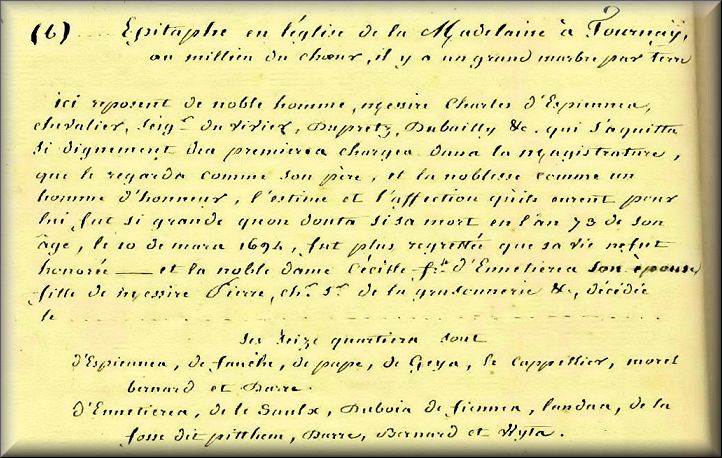 (6) .... Epitaphe en l'église de la Madelaine à Tournay,
au millieu du chœur, il y a un grand marbre par terre
ici reposent de noble homme, messire Charles d'Espiennes,
chevalier, seigr. du vivier, Dupretz, Dubailly &c. qui s'aquitta
si dignement des premieres charges dans la magistrature,
que le regarda comme son père, et la noblesse comme un
homme d'honneur, l'estime et l'affection qu'ils eurent pour
lui fut si grande quon douta si sa mort en l'an 73 de son
âge, le 10 de mars 1694, fut plus regrettée que sa vie ne fut
honorée — et la noble dame Cécille fr. d'Ennetieres son épouse
fille de messire Pierre, chr. sr. de la grusonnerie &c, décédée
le ................
ses seize quartiers sont
d'Espiennes, de fanelx, de pape, de Geys, le Cappellier, morel
bernard et Barre.
d'Ennetieres, de le Saulx, Dubois de fiennes, landas, de la
fosse dit pitthem, Barre, Bernard et Wyts.